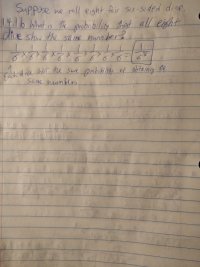 Suppose we roll eight fair six-sided dice,
1.4.1 b What is the probability that all eight
dice show the same number?
1/6 × 1/6 × 1/6 × 1/6 × 1/6 × 1/6 × 1/6 = 1/6⁷
Each dice has the same probability of obtaining the
same number